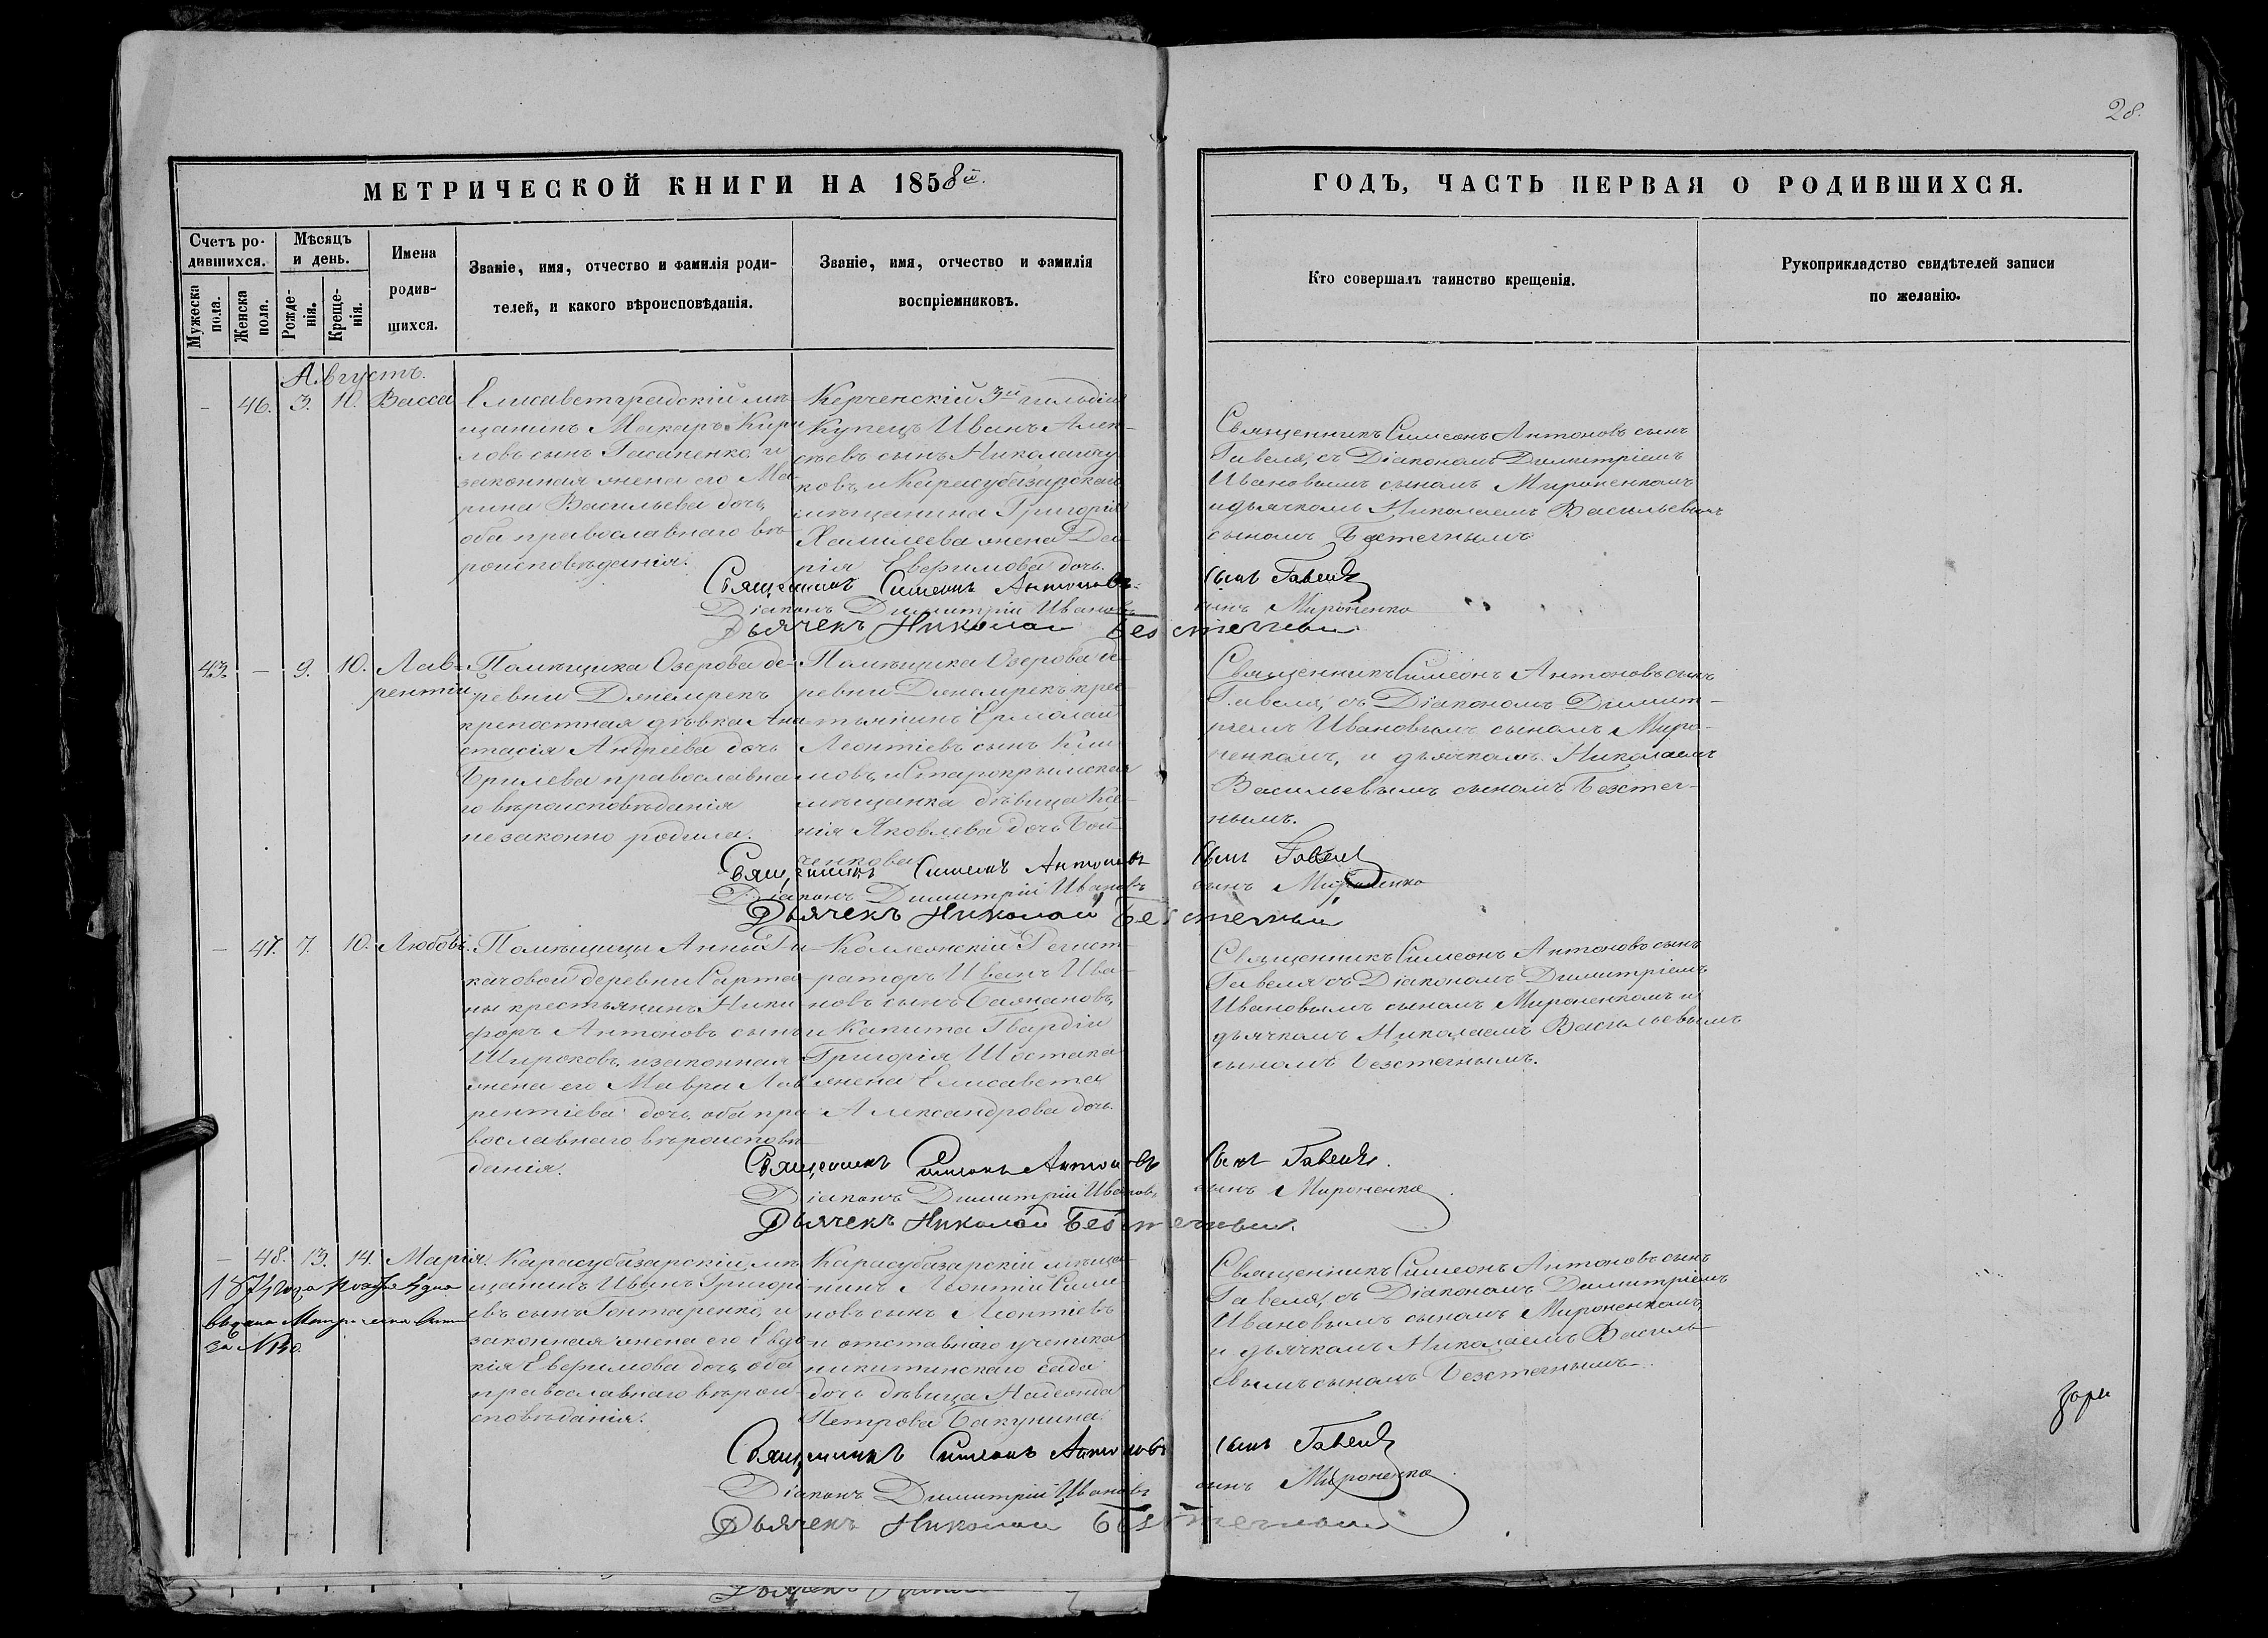 28.
МЕТРИЧЕСКОЙ КНИГИ НА 1858й.
ГОДЪ, ЧАСТЬ ПЕРВАЯ О РОДИВШИХСЯ.
Счетъ ро-
дившихся.
Мужеска
пола.
Женска
пола.
Мѣсяцъ
и день.
Рожде-
нія.
Креще-
нія.
Имена
родив-
шихся.
Званіе, имя, отчество и фамилія роди-
телей, и какого вѣроисповѣданія.
Званіе, имя, отчество и фамилія
воспріемниковъ.
Кто совершалъ таинство крещенія.
Рукоприкладство свидѣтелей записи
по желанію.
Августъ.
– 46. 3. 10. Васса
Елисаветградскій мѣ-
щанинъ Макаръ Кири
ловъ сынъ и
законная жена его Ма-
рина Васильева дочь,
оба православнаго вѣ-
роисповѣданія.
Керченскій 3й гильдіи
Купецъ Иванъ Алек-
сѣевъ сынъ
ковъ, и Карасубазарскаго
мѣщанина Григорія
жена Да-
рія Евфимова дочь.
Священникъ Симеонъ Антоновъ сынъ
Гавеля, съ Діакономъ Димитріемъ
Ивановымъ сыномъ Мироненкомъ
и дьячкомъ Николаемъ Васильевымъ
сыномъ Безстечнымъ
Священникъ Симеонъ Антоновъ сынъ Гавеля
Діаконъ Димитрій Ивановъ сынъ Мироненко
Дьячекъ Николай Безстечный
43. – 9. 10. Лав-
рентій
Помѣщика Озерова де-
ревни
крепостная дѣвка Ана-
стасія Андреева дочь
Брилева православна-
го вѣроисповѣданія
незаконно родила.
Помѣщика Озерова де-
ревни крес-
тьянинъ Ермолай
Леонтіевъ сынъ Кли-
мовъ, и Старокрымская
мѣщанка дѣвица Ксе-
нія Яковлева дочь Бой-
ченкова
Священникъ Симеонъ Антоновъ сынъ
Гавеля, съ Діакономъ Димит-
ріемъ Ивановымъ сыномъ Миро-
ненкомъ, и дьячкомъ Николаемъ
Васильевымъ сыномъ Безстеч-
нымъ.
Священникъ Симеонъ Антоновъ сынъ Гавеля
Діаконъ Димитрій Ивановъ сынъ Мироненко
Дьячекъ Николай Безстечный
– 47. 7. 10. Любовь.
Помѣщицы Анны Ги-
качовой деревни Сарта
ны крестьянинъ Ники
форъ Антоновъ сынъ
Широковъ, и законная
жена его Мавра Лав
рентіева дочь, оба пра
вославнаго вѣроисповѣ-
данія.
Коллежскій Регист-
раторъ Иванъ Ива-
новъ сынъ
и Капита Гвардіи
Григорія Шостака
жена Елисавета
Александрова дочь.
Священникъ Симеонъ Антоновъ сынъ
Гавеля съ Діакономъ Димитріемъ
Ивановымъ сыномъ Мироненкомъ и
дьячкомъ Николаемъ Васильевымъ
сыномъ Безстечнымъ.
Священникъ Симеонъ Антоновъ сынъ Гавеля.
Діаконъ Димитрій Ивановъ сынъ Мироненко
Дьячекъ Николай Безстечный.
– 48. 13. 14. Марія.
1874 года Ноября 4 дня
выдана
за №
Карасубазарскій мѣ
щанинъ Иванъ Григорі
евъ сынъ Гонтаренко, и
законная жена его Евдо
кія Евфимова дочь, оба
православнаго вѣрои-
сповѣданія.
Карасубазарскій мѣща-
нинъ Леонтій Симо
новъ сынъ Леонтіевъ
и отставнаго ученика
никитинскаго сада
дочь дѣвица
Петрова Бакунина.
Священникъ Симеонъ Антоновъ сынъ
Гавеля, съ Діакономъ Димитріемъ
Ивановымъ сыномъ Мироненкомъ,
и дьячкомъ Николаемъ Василь-
евымъ сыномъ Безстечнымъ.
Священникъ Симеонъ Антоновъ сынъ Гавеля
Діаконъ Димитрій Ивановъ сынъ Мироненко
Дьячекъ Николай Безстечный